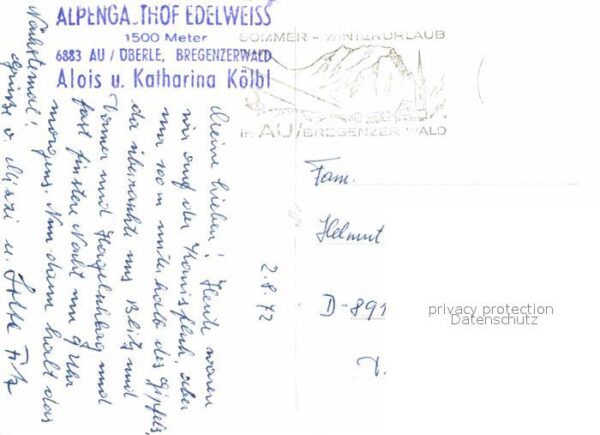 ALPENGASTHOF EDELWEISS
1500 Meter
6883 AU / ÜBERLE, BREGENZERWALD
Alois u. Katharina Kölbl
SOMMER - WINTERURLAUB
in AU/BREGENZERWALD
2.8.72
Meine Lieben! Heute waren
wir auf der Kanisfluh, aber
nur 100 m unterhalb des Gipfels,
da überraschte uns Blitz und
Donner und Hagelschlag und
fast finstere Nacht um 9 Uhr
morgens. Nun dann halt das
Nächstemal!
Grüsse v. Mizzi u.
Fam.
Helmut
D-891
privacy protection
Datenschutz